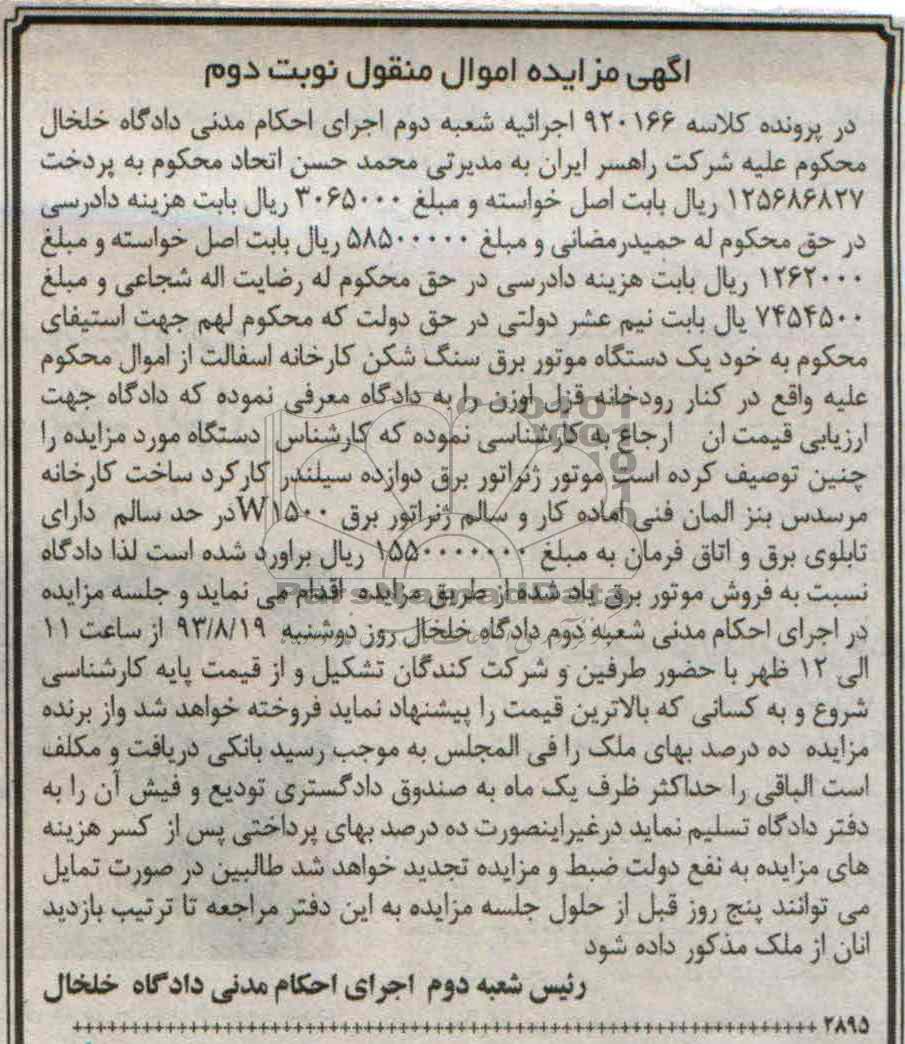 اگهی مزایده اموال منقول نوبت دوم
در پرونده کلاسه ۹۲۰۱۶۶ اجرائیه شعبه دوم اجرای احکام مدنی دادگاه خلخال
محکوم علیه شرکت راهسر ایران به مدیرتی محمد حسن اتحاد محکوم به پردخت
۱۲۵۶۸۶۸۲۷ ریال بابت اصل خواسته و مبلغ ۳۰۶۵۰۰۰ ریال بابت هزینه دادرسی
در حق محکوم له حمیدرمضانی و مبلغ ۵۸۵۰۰۰۰۰ ریال بابت اصل خواسته و مبلغ
۱۲۶۲۰۰۰ ریال بابت هزینه دادرسی در حق محکوم له رضایت اله شجاعی و مبلغ
۷۴۵۴۵۰۰ یال بابت نیم عشر دولتی در حق دولت که محکوم لهم جهت استیفای
محکوم به خود یک دستگاه موتور برق سنگ شکن کارخانه اسفالت از اموال محکوم
علیه واقع در کنار رودخانه قزل اوزن را به دادگاه معرفی نموده که دادگاه جهت
ارزیابی قیمت ان ارجاع به کارشناسی نموده که کارشناس دستگاه مورد مزایده را
چنین توصیف کرده است موتور ژنراتور برق دوازده سیلندر کارکرد ساخت کارخانه
مرسدس بنز المان فنی اماده کار و سالم ژنراتور برق W۱۵۰۰ در حد سالم دارای
تابلوی برق و اتاق فرمان به مبلغ ۱۵۵۰۰۰۰۰۰۰ ریال براورد شده است لذا دادگاه
نسبت به فروش موتور برق یاد شده از طریق مزایده اقدام می نماید و جلسه مزایده
در اجرای احکام مدنی شعبه دوم دادگاه خلخال روز دوشنبه ۹۳/۸/۱۹ از ساعت ۱۱
الی ۱۲ ظهر با حضور طرفین و شرکت کندگان تشکیل و از قیمت پایه کارشناسی
شروع و به کسانی که بالاترین قیمت را پیشنهاد نماید فروخته خواهد شد واز برنده
مزایده ده درصد بهای ملک را فی المجلس به موجب رسید بانکی دریافت و مکلف
است الباقی را حداکثر ظرف یک ماه به صندوق دادگستری تودیع و فیش آن را به
دفتر دادگاه تسلیم نماید درغیراینصورت ده درصد بهای پرداختی پس از کسر هزینه
های مزایده به نفع دولت ضبط و مزایده تجدید خواهد شد طالبین در صورت تمایل
می توانند پنج روز قبل از حلول جلسه مزایده به این دفتر مراجعه تا ترتیب بازدید
انان از ملک مذکور داده شود
رئیس شعبه دوم اجرای احکام مدنی دادگاه خلخال
۲۸۹۵
ParsNamadData